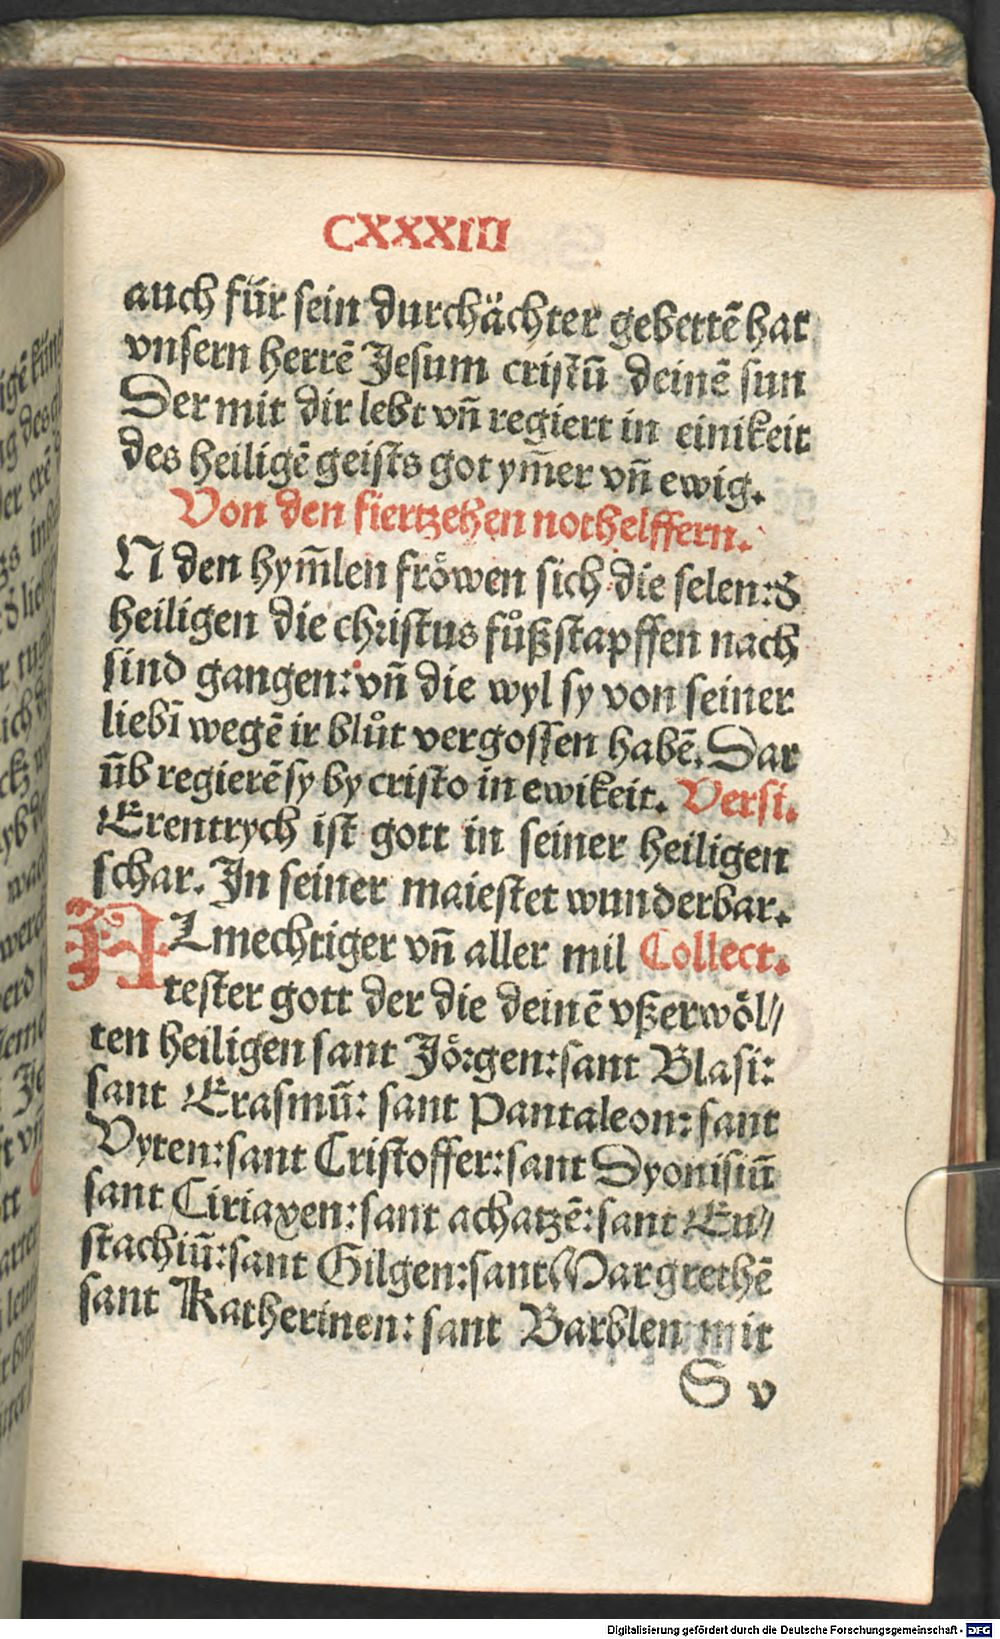 CXXXIII
auch für sein durchächter gebettē hat
vnsern herrē Jesum cristū deinē sun
Der mit dir lebt vñ regiert in einikeit
des heiligē geists got ym̄er vñ ewig.
Von den fiertzehen nothelffern.
N den hym̄len fröwen sich die selen: d̕
heiligen die christus fůßstapffen nach
sind gangen: vñ die wyl sy von seiner
liebī wegē ir blůt vergossen habē. Dar
ūb regierē sy by cristo in ewikeit. Versi.
Erentrych ist gott in seiner heiligen
schar. In seiner maiestet wunderbar.
ALmechtiger vñ aller mil Collect.
tester gott der die deinē vßerwöl//
ten heiligen sant Jörgen: sant Blasi:
sant Erasmū: sant Pantaleon: sant
Vyten: sant Cristoffer: sant Dyonisiū
sant Ciriaxen: sant achatzē: sant Eu//
stachiū: sant Gilgen: sant Margrethē
sant Katherinen: sant Barblen mit
S v
Digitalisierung gefördert durch die Deutsche Forschungsgemeinschaft - DFG